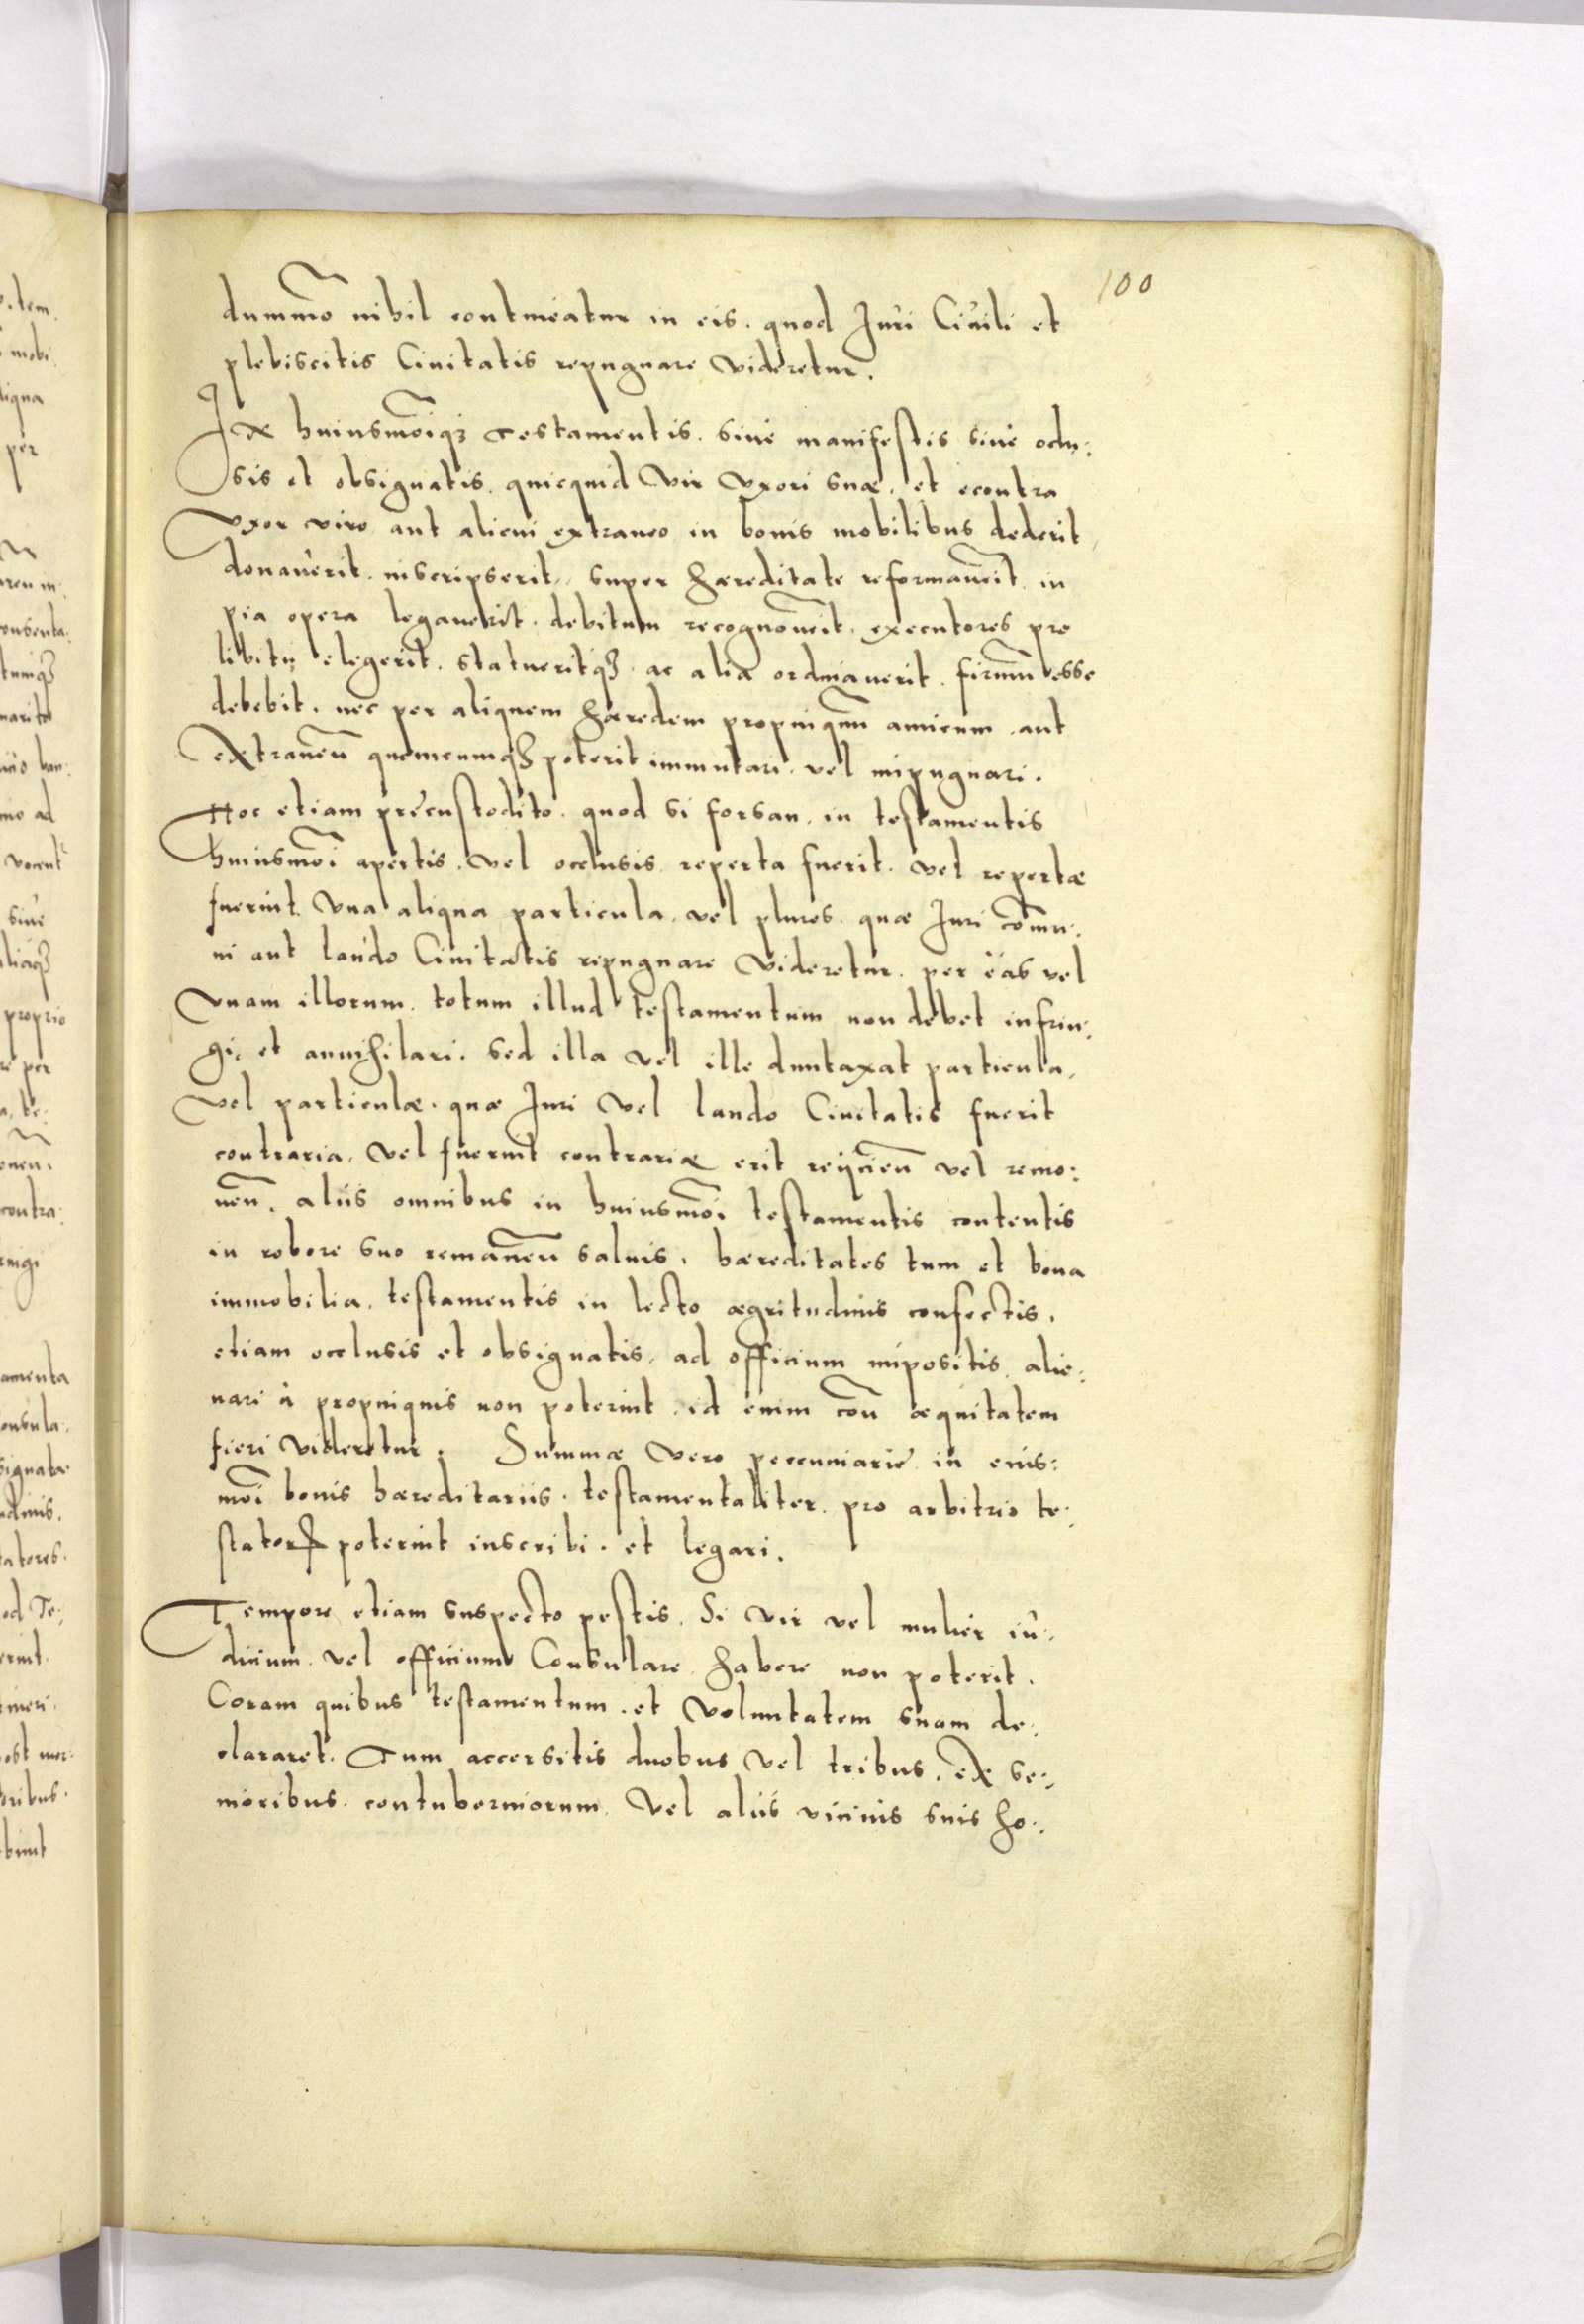 100
dummo nihil contineatur in eis. quod Juri Ciuili et
plebiscitis Ciuitatis repugnare videretur.
Ex huiusmoiqз Testamentis. siue manifestis siue oclu:
sis et obsignatis. quicquid vir vxori suæ, et econtra
vxor viro aut alicui extraneo in bonis mobilibus dederit,
donauerit. inscripserit, super hæreditate reformauerit in
pia opera legauerit. debitum recognouerit. executores pro
libitu elegerit. statueritqз ac alia ordinauerit. firmum esse
debebit. nec per aliquem hæredem propinquum amicum aut
extraneum quemcumqз poterit immutari. vel impugnari.
Hoc etiam precustodito. quod si forsan. in testamentis
huiusmoi apertis. vel oclusis reperta fuerit. vel repertæ
fuerint vna aliqua particula. vel plures. quæ Juri comu:
ni aut laudo Ciuitatis repugnare videretur. per eas vel
vnam illorum. totum illud testamentum non debet infrin:
gi, et annihilari. sed illa vel ille duntaxat particula,
vel particulæ. quæ Juri vel laudo Ciuitatis fuerit
contraria, vel fuerint contrariæ erit reijcien̄ vel remo:
uen̄. aliis omnibus in huiusmoi testamentis contentis
in robore suo remanen̄ saluis. hæreditates tum et bona
immobilia. testamentis in lecto ægritudinis confectis.
etiam occlusis et obsignatis, ad officium impositis alie:
nari à propinquis non poterint. id enim con̄ æquitatem
fieri videretur. Summæ vero pecuniarie in eius:
moi bonis hæreditariis. testamentaliter pro arbitrio te:
statorꝝ poterint inscribi. et legari.
Tempore etiam suspecto pestis. Si vir vel mulier iu:
dicium. vel officium Consulare habere non poterit.
Coram quibus testamentum. et voluntatem suam de:
clararet. Tum accersitis duobus vel tribus. ex se:
nioribus contuberniorum. vel aliis vicinis suis ho: